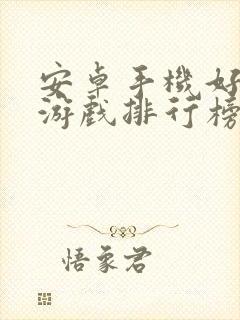 安卓手機好
游戲排行榜
悟象君